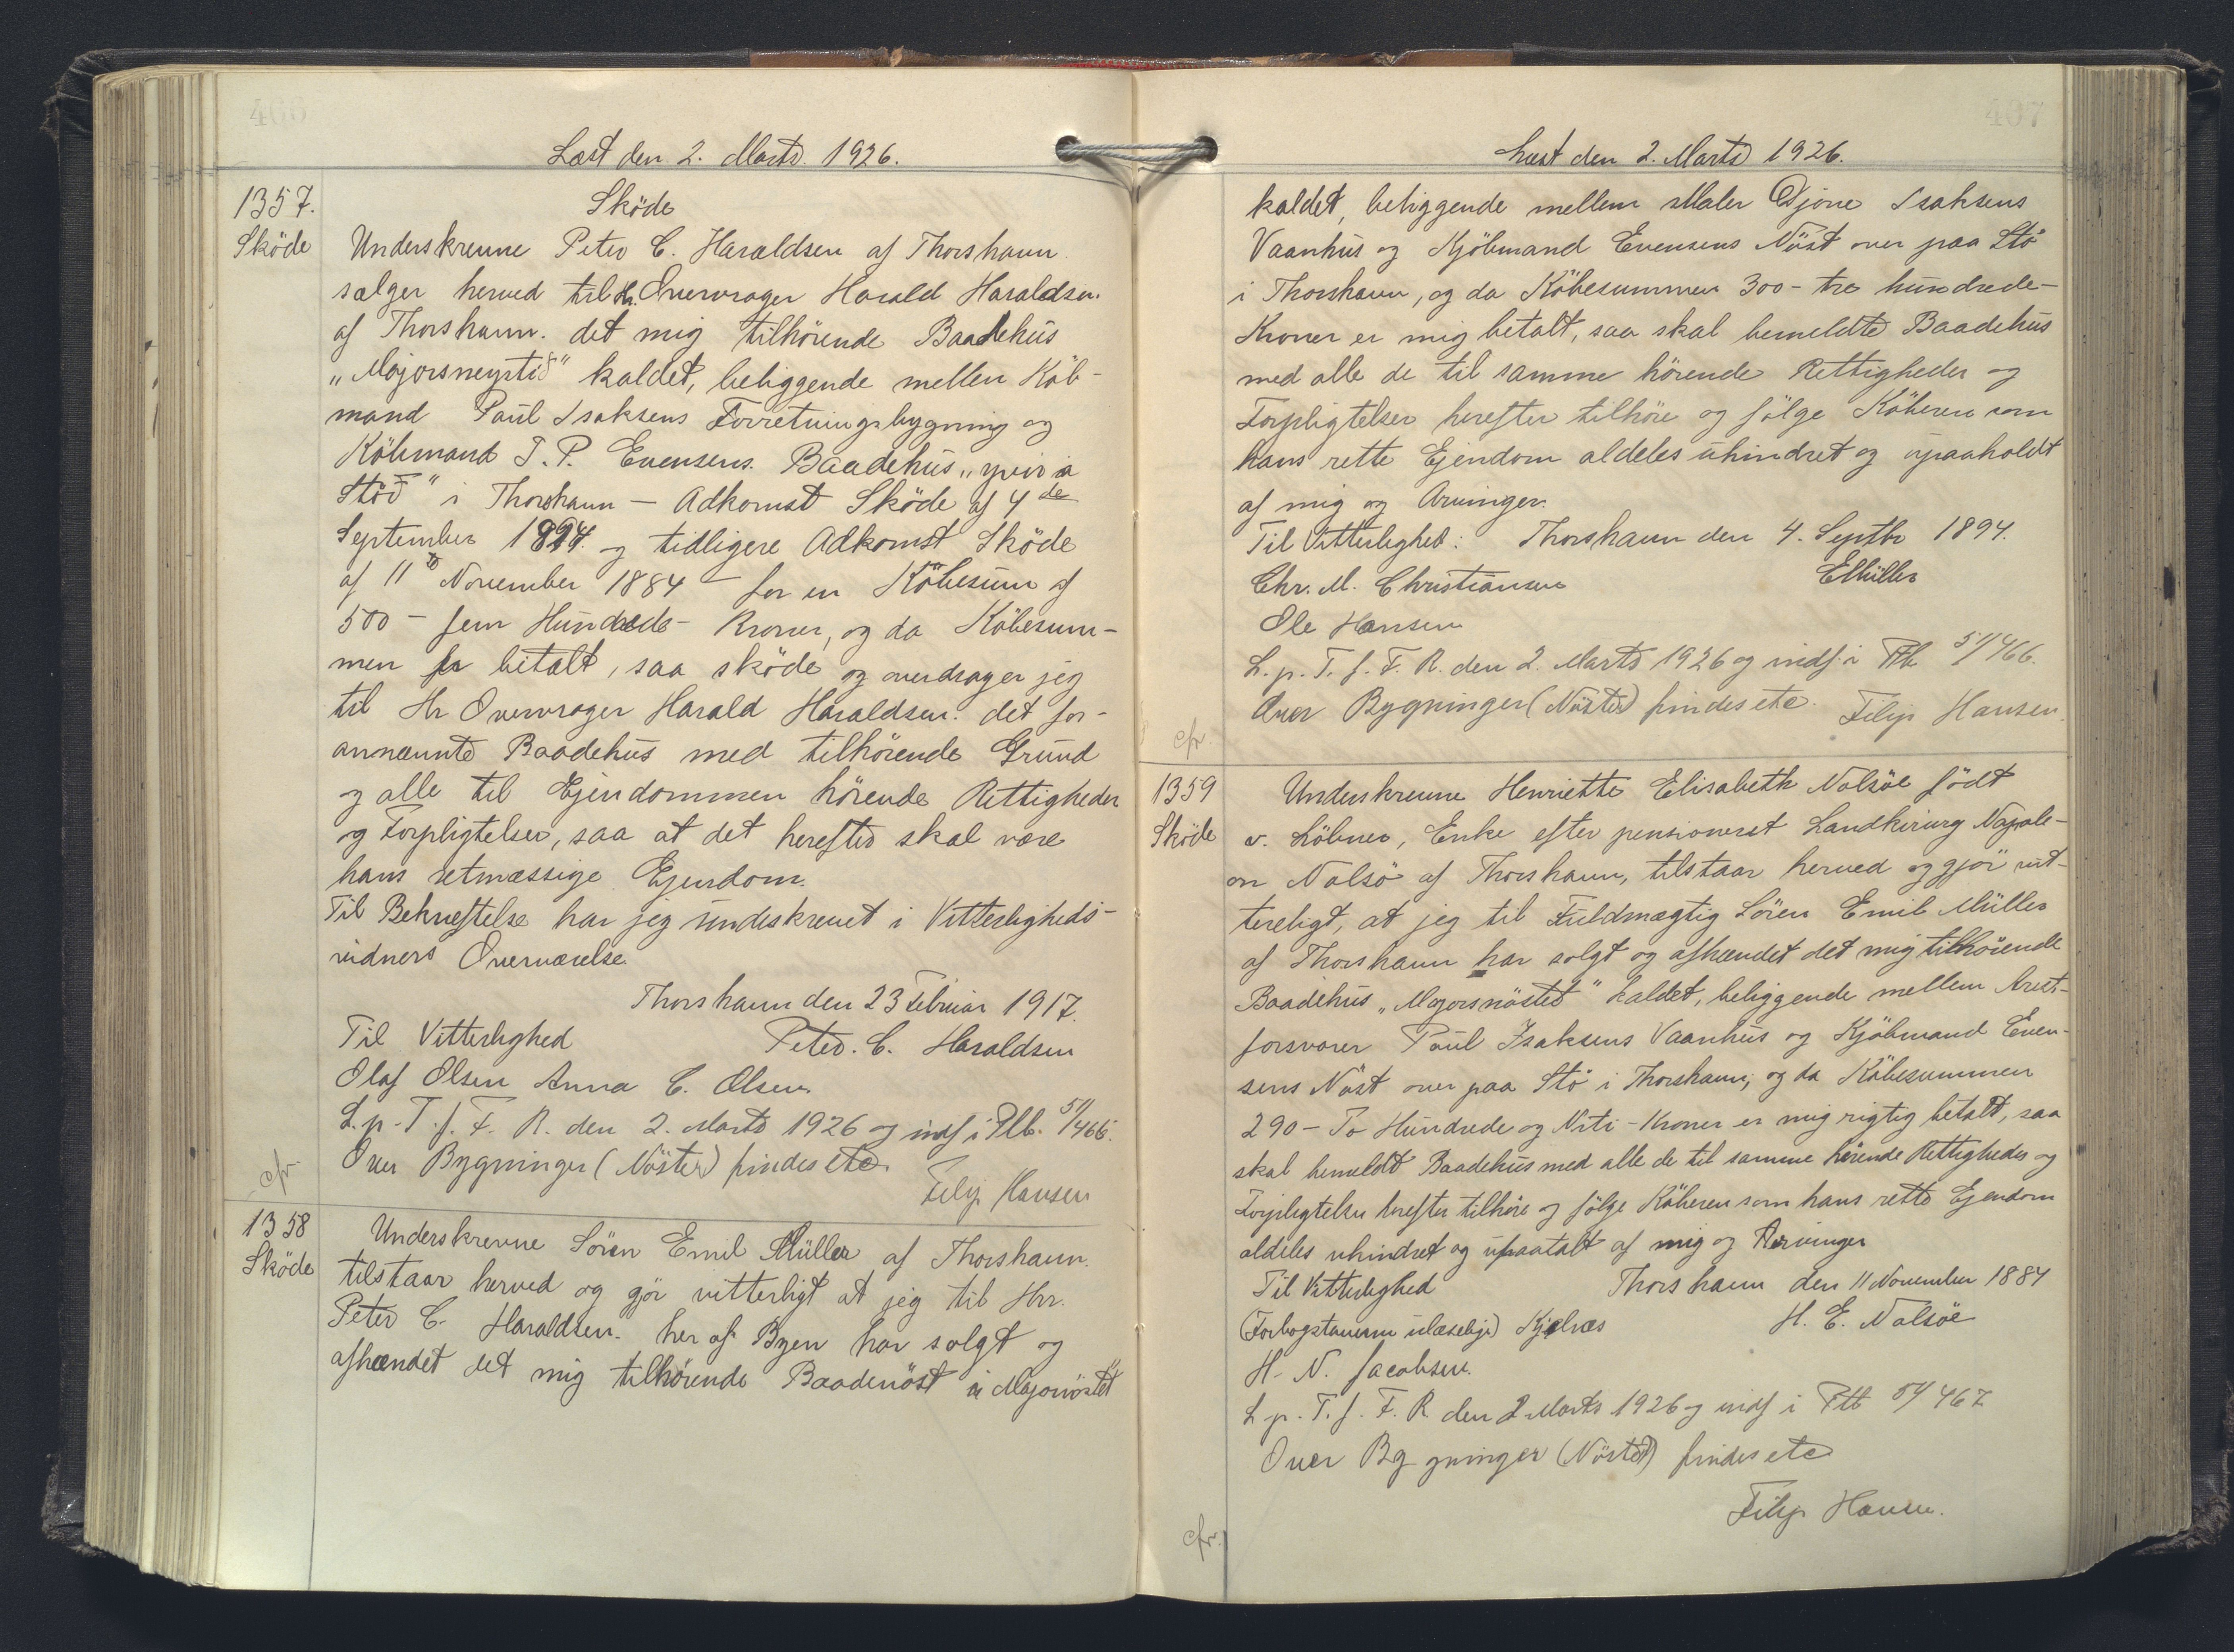 466
Læst den 2. Marts 1926.
1357.
Sköde
Sköde
Underskrevne Peter C. Haraldsen af Thorshavn
sælger herved til Hr. Overvrager Harald Haraldsen.
af Thorshavn. det mig tilhörende Baadehus
"Majorsneystið" kaldet, beliggende mellen Köb-
mand Paul Isaksens Forretningsbygning og
Köbmand J. P. Evensens Baadehus "yvir á
Stöð" i Thorshavn – Adkomst Sköde af 4de
September 1894. og tidligere Adkomst Sköde
af 11 November 1884 – for en Köbesum af
500 – fem Hundrede – Kroner, og da Köbesum-
men er betalt, saa sköde og overdrager jeg
til Hr Overvrager Harald Haraldsen. det for-
annævnte Baadehus med tilhörende Grund
og alle til Ejendommen hörende Rettigheder
og Forpligtelser, saa at det herefter skal være
hans retmæssige Ejendom.
Til Bekræftelse har jeg underskrevet i Vitterligheds-
vidners Overværelse
Thorshavn den 23 Februar 1917.
Til Vitterlighed Peter. C. Haraldsen
Olaf Olsen Anna C. Olsen.
L. p. T. f. F. R. den 2. Marts 1926 og indf i Ptb. 51/466.
Over Bygninger (Nöster) findes etc.
Filip Hansen
cfr.
1358
Sköde
Underskrevne Sören Emil Müller af Thorshavn.
tilstaar herved og gör vitterligt at jeg til Hr.
Peter C. Haraldsen. her af Byen har solgt og
afhændet det mig tilhörende Baadenöst "Majornöstet"
467
Læst den 2. Marts 1926.
kaldet, beliggende mellem Maler Djone Isaksens
Vaanhus og Kjöbmand Evensens Nöst over paa Stö
i Thorshavn, og da Köbesummen 300 – tre hundrede –
Kroner er mig betalt, saa skal bemeldte Baadehus
med alle de til samme hörende Rettigheder og
Forpligtelser herefter tilhöre og fölge Köberen som
hans rette Ejendom aldeles uhindret og upaaholdt
af mig og Arvinger.
Til Vitterlighed: Thorshavn den 4. Septbr 1894.
Chr. M. Christiansen EMüller
Ole Hansen
L. p. T. f. F. R. den 2. Marts 1926 og indf. i Ptb 51/466.
Over Bygninger (Nöster) findes etc. Filip Hansen.
cfr.
1359
Sköde
Underskrevne Henriette Elisabeth Nolsöe födt
v. Löbner, Enke efter pensioneret Landkirurg Napole-
on Nolsö af Thorshavn, tilstaar herved og gjör vit-
terligt, at jeg til Fuldmægtig Sören Emil Müller
af Thorshavn har solgt og afhændet det mig tilhörende
Baadehus "Majorsnöstet" kaldet, beliggende mellem Arest-
forsvarer Poul Isaksens Vaanhus og Kjöbmand Even-
sens Nöst over paa Stö i Thorshavn, og da Köbesummen
290 – To Hundrede og Niti – Kroner er mig rigtig betalt, saa
skal bemeldt Baadehus med alle de til samme hörende Rettigheder og
Forpligtelser herefter tilhöre og fölge Köberen som hans rette Ejendom
aldeles uhindret og upaatalt af mig og Arvinger
Til Vitterlighed Thorshavn den 11 November 1884
(Forbogstaverne ulæselige) Kjelnæs H. E. Nolsöe
H. N. Jacobsen.
L. p. T. f. F. R den 2 Marts 1926 og indf i Ptb 51/467
Over Bygninger (Nöster) findes etc
Filip Hansen.
cfr.